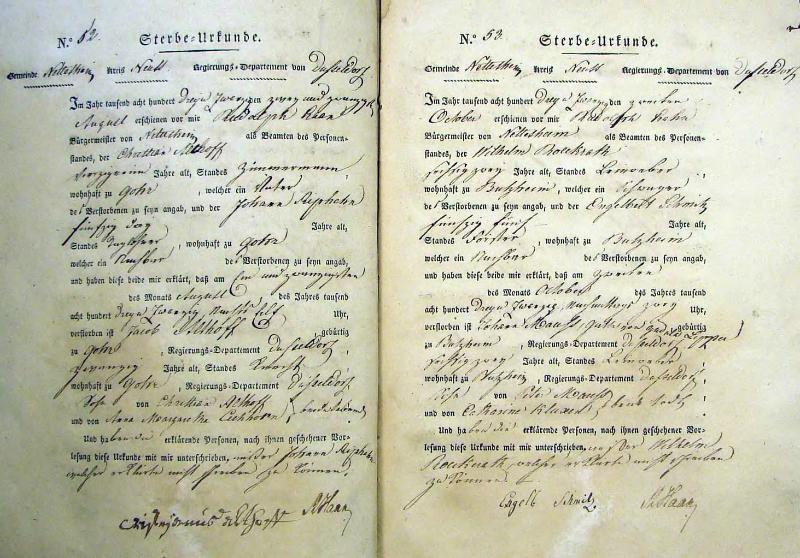 N.° 52. Sterbe-Urkunde.
Gemeinde Nettesheim Kreis Neuss Regierungs-Departement von Dusseldorf
Im Jahr tausend acht hundert Drey u Zwanzig den zwey und zwanzigsten
August erschienen vor mir Rudolph Haan
Bürgermeister von Nettesheim als Beamten des Personen-
standes, der Christian Althoff
Jahre alt, Standes Zimmermann
wohnhaft zu Gohr, welcher ein Vater
des Verstorbenen zu seyn angab, und der Johann
fünfzig Jahre alt,
Standes Taglöhner, wohnhaft zu Gohr
welcher ein Nachbar des Verstorbenen zu seyn angab,
und haben diese beide mir erklärt, daß am Ein und zwanzigsten
des Monats August des Jahres tausend
acht hundert Drey u Zwanzig, Nachts elf Uhr,
verstorben ist Jacob Althoff gebürtig
zu Gohr, Regierungs-Departement Dusseldorf
zwanzig Jahre alt, Standes Knecht
wohnhaft zu Gohr, Regierungs-Departement Dusseldorf
Sohn von Christian Althoff
und von Anna Margaretha
Und haben die erklärende Personen, nach ihnen geschehener Vor-
lesung diese Urkunde mit mir unterschrieben, außer Johann
welcher erklärte nicht schreiben zu können.
RHaan
N.° 53. Sterbe-Urkunde.
Gemeinde Nettesheim Kreis Neuss Regierungs-Departement von Dusseldorf
Im Jahr tausend acht hundert Drey u Zwanzig den zweiten
October erschienen vor mir Rudolph Haan
Bürgermeister von Nettesheim als Beamten des Personen-
standes, der Wilhelm Rockrath
sechszig zwey Jahre alt, Standes
wohnhaft zu Butzheim, welcher ein Schwager
des Verstorbenen zu seyn angab, und der Engelbert Schmitz
fünfzig fünf Jahre alt,
Standes Förster, wohnhaft zu Butzheim
welcher ein Nachbar des Verstorbenen zu seyn angab,
und haben diese beide mir erklärt, daß am zweiten
des Monats October des Jahres tausend
acht hundert Drey u Zwanzig, Nachmittags zwey Uhr,
verstorben ist Johann Mauss, gebürtig
zu Butzheim, Regierungs-Departement Dusseldorf
sechszig zwey Jahre alt, Standes
wohnhaft zu Butzheim, Regierungs-Departement Dusseldorf
Sohn von Peter Mauss
und von Catharina
Und haben die erklärende Personen, nach ihnen geschehener Vor-
lesung diese Urkunde mit mir unterschrieben, außer Wilhelm
Rockrath, welcher erklärte nicht schreiben
zu können
Engelb Schmitz RHaan